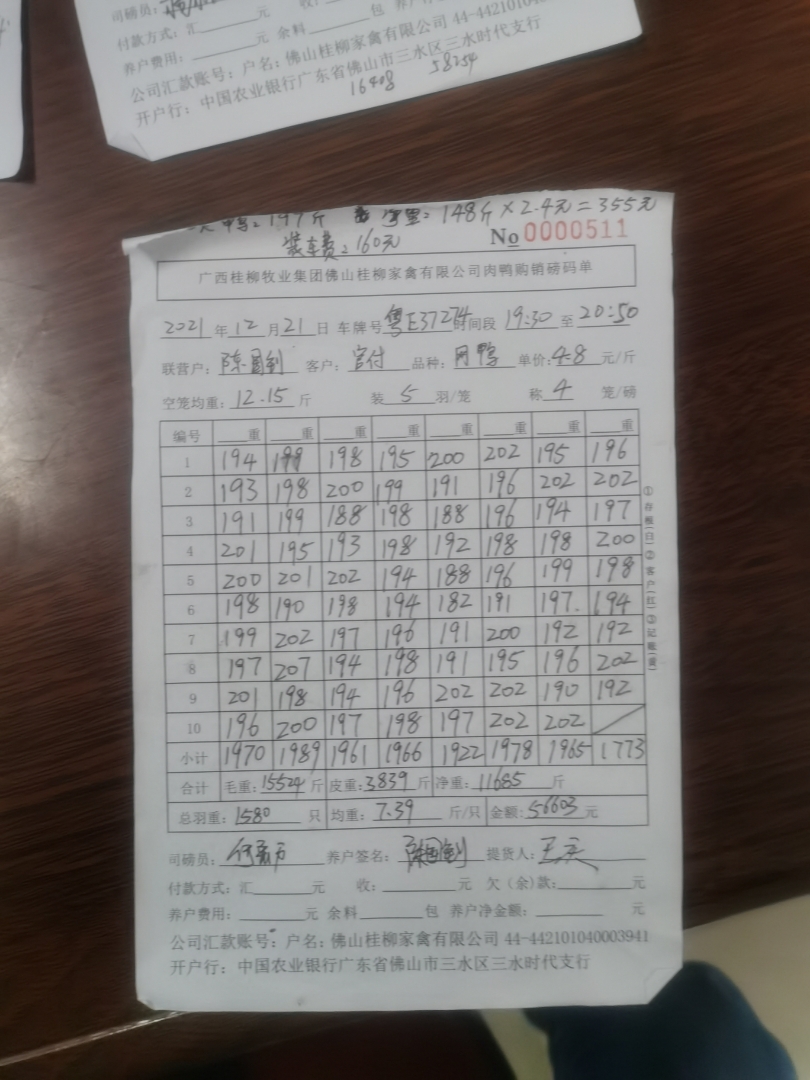 司磅员:
付款方式:汇 元 收:
养户费用: 元 余料 包 养户
公司汇款账号:户名:佛山桂柳家禽有限公司 44-44210104
开户行:中国农业银行广东省佛山市三水区三水时代支行
16408 58254
197斤 148斤×2.4元=355元
装车费:160元 No 0000511
广西桂柳牧业集团佛山桂柳家禽有限公司肉鸭购销磅码单
2021年12月21日 车牌号粤E37274时间段 19:30至20:50
联营户:陈国钊 客户:官付 品种:肉鸭 单价:4.8元/斤
空笼均重:12.15斤 装5羽/笼 称4笼/磅
编号 重 重 重 重 重 重 重 重
1 194 199 198 195 200 202 195 196
2 193 198 200 199 191 196 202 202
3 191 199 188 198 188 196 194 197
4 201 195 193 198 192 198 198 200
5 200 201 202 194 188 196 199 198
6 198 190 198 194 182 191 197. 194
7 199 202 197 196 191 200 192 192
8 197 207 194 198 191 195 196 202
9 201 198 194 196 202 202 190 192
10 196 200 197 198 197 202 202
小计 1970 1989 1961 1966 1922 1978 1965 1773
合计 毛重:15524斤 皮重:3839斤 净重:11685斤
总羽重:1580只 均重:7.39斤/只 金额:56603元
司磅员: 养户签名:陈国钊 提货人:
付款方式:汇 元 收: 元 欠(余)款: 元
养户费用: 元 余料 包 养户净金额: 元
公司汇款账号:户名:佛山桂柳家禽有限公司 44-442101040003941
开户行:中国农业银行广东省佛山市三水区三水时代支行
①存根(白)②客户(红)③记账(黄)